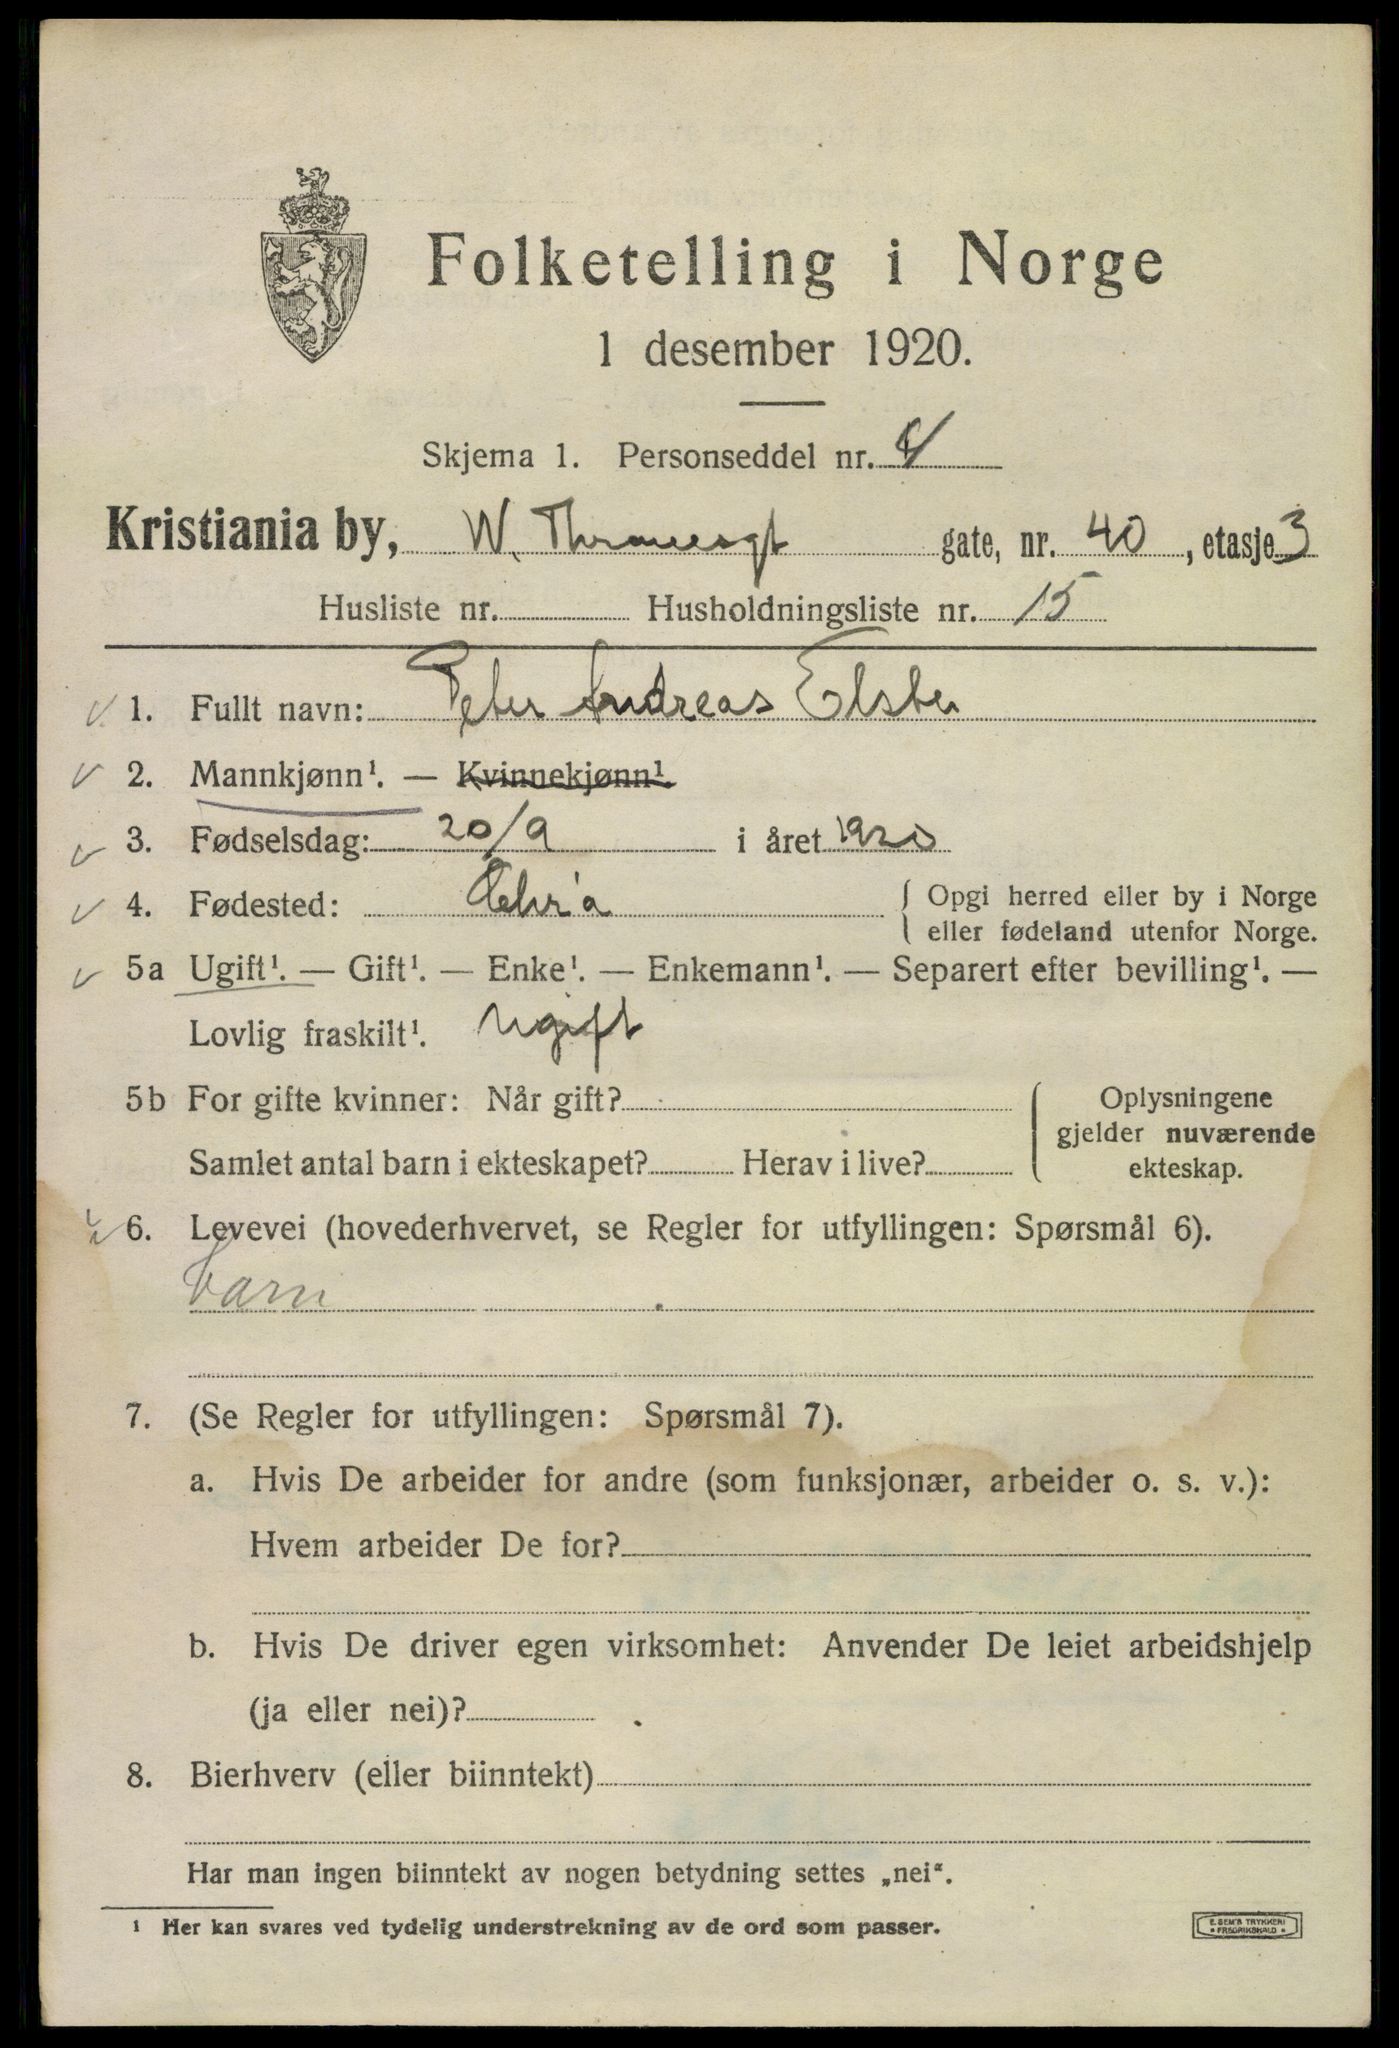 Folketelling i Norge
1 desember 1920.
Skjema 1. Personseddel nr.
Kristiania by, W. Thranesgt gate, nr. 40, etasje 3
Husliste nr. Husholdningsliste nr. 15
1. Fullt navn: Peter Andreas Elster
2. Mannkjønn¹. — Kvinnekjønn¹.
3. Fødselsdag: 20/9 i året 1920
4. Fødested: Chr'a { Opgi herred eller by i Norge
eller fødeland utenfor Norge.
5a Ugift¹. — Gift¹. — Enke¹. — Enkemann¹. — Separert efter bevilling¹. —
Lovlig fraskilt¹. Ugift
5b For gifte kvinner: Når gift? { Oplysningene
gjelder nuværende
Samlet antal barn i ekteskapet? Herav i live? ekteskap.
6. Levevei (hovederhvervet, se Regler for utfyllingen: Spørsmål 6).
barn
7. (Se Regler for utfyllingen: Spørsmål 7).
a. Hvis De arbeider for andre (som funksjonær, arbeider o. s. v.):
Hvem arbeider De for?
b. Hvis De driver egen virksomhet: Anvender De leiet arbeidshjelp
(ja eller nei)?
8. Bierhverv (eller biinntekt)
Har man ingen biinntekt av nogen betydning settes „nei“.
¹ Her kan svares ved tydelig understrekning av de ord som passer.
E. SEM'S TRYKKERI
* FREDRIKSHALD *